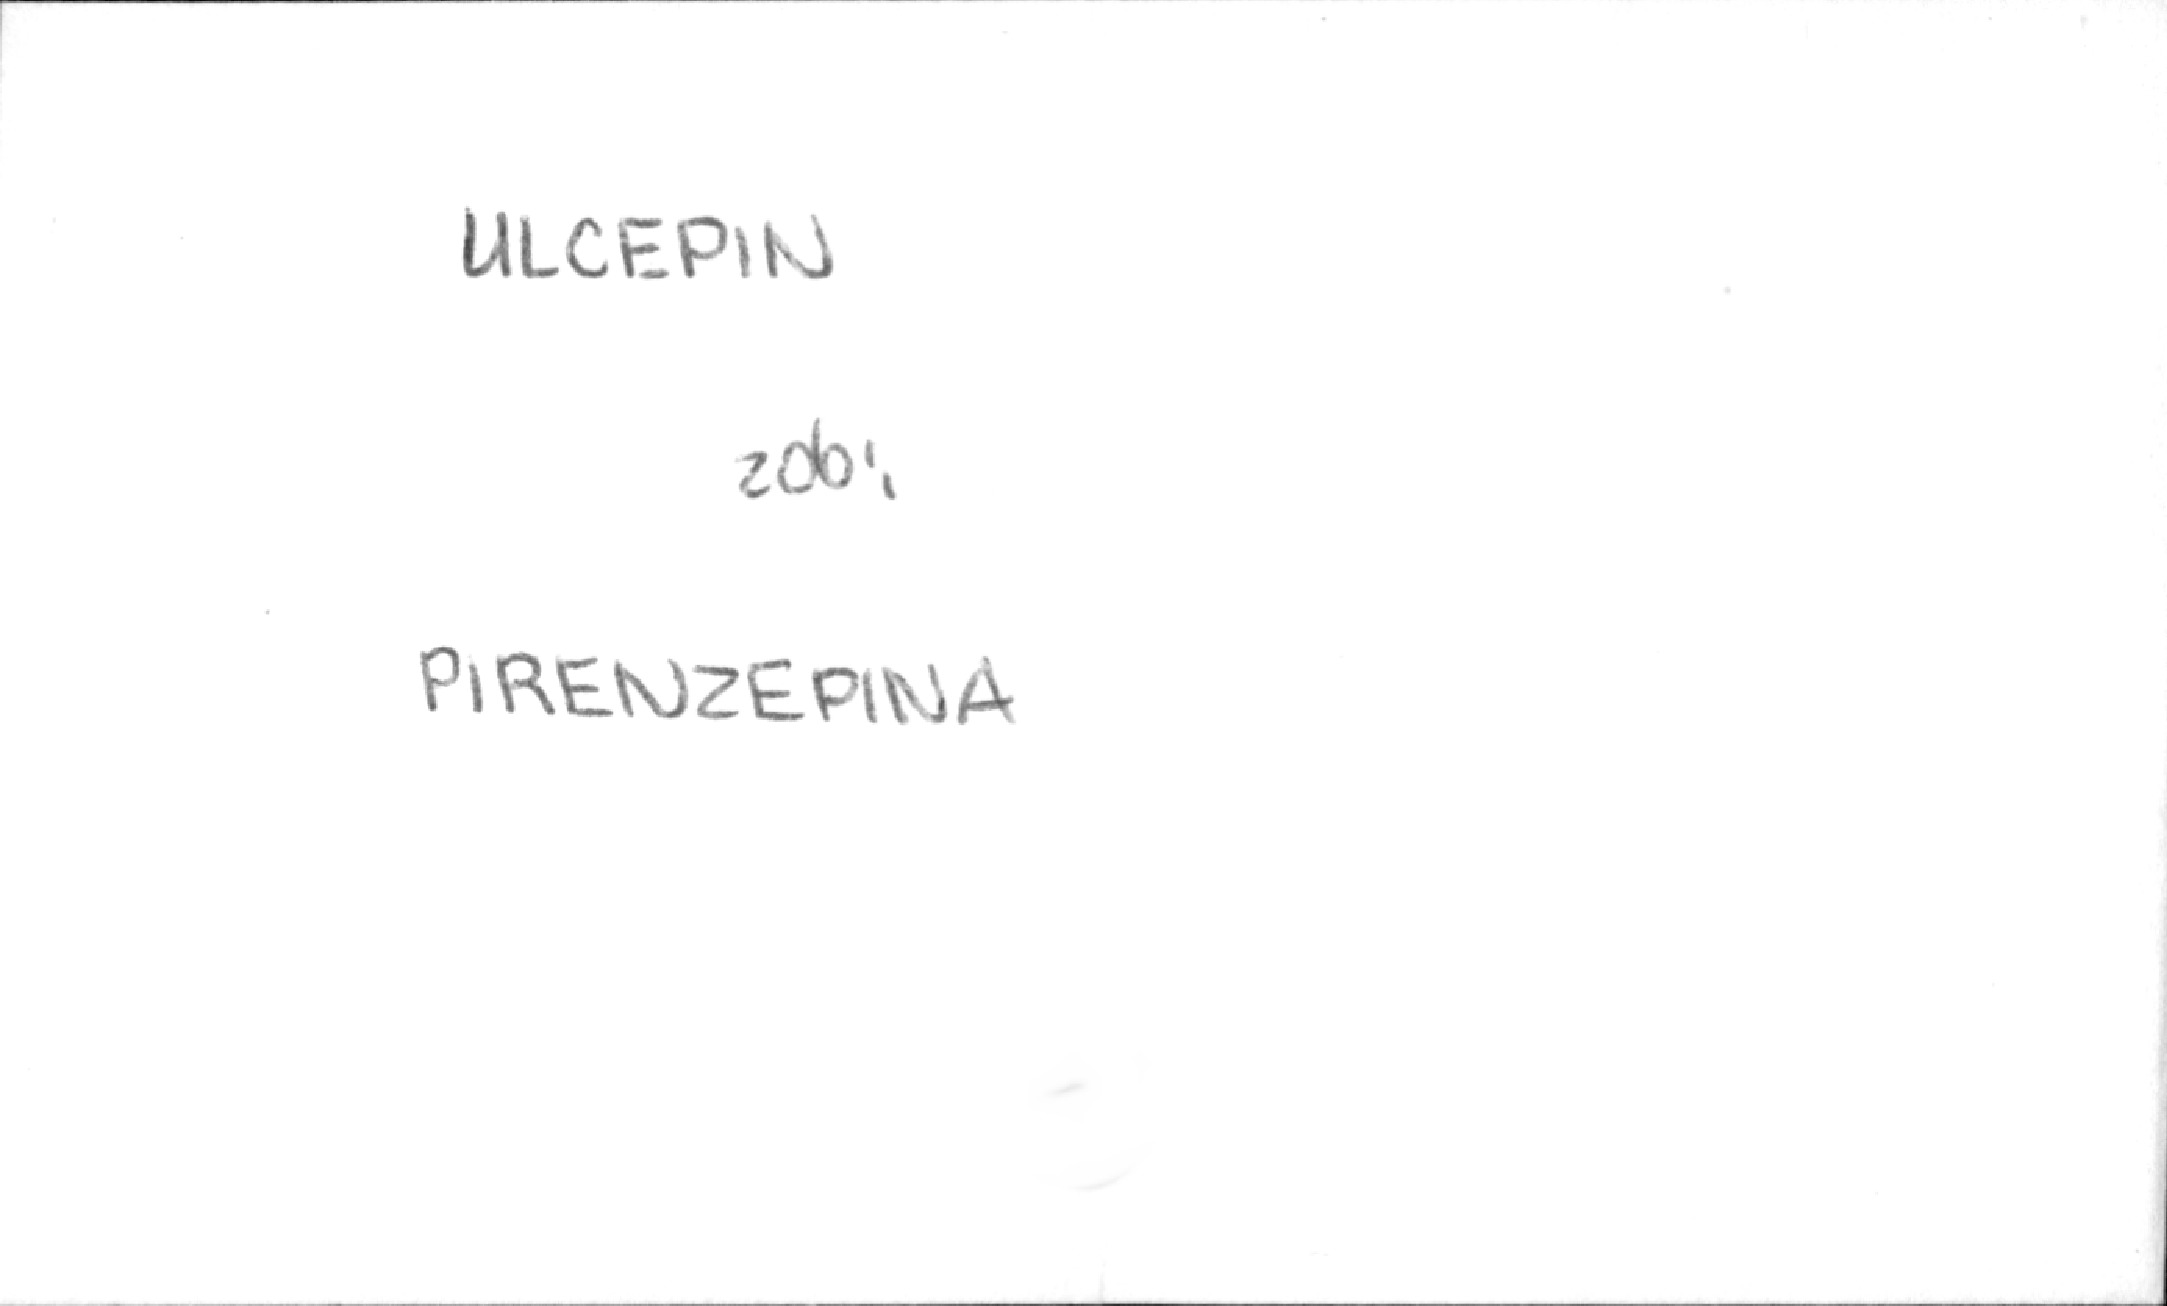 ULCEPIN
PIRENZEPINA